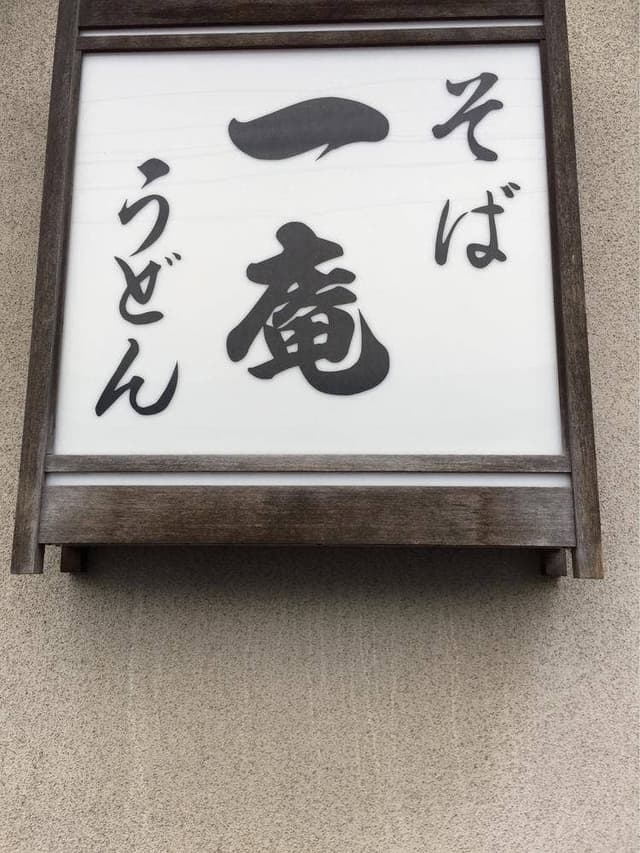 そば
一庵
うどん